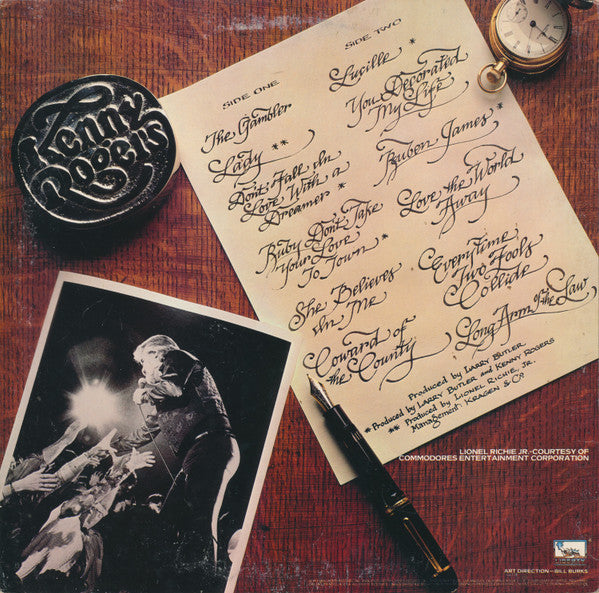 Kenny
Rogers
SIDE ONE
The Gambler
Lady **
Don't Fall In
Love With a
Dreamer *
Ruby Don't Take
Your Love
To Town *
She Believes
In Me
Coward of
the County
SIDE TWO
Lucille *
You Decorated
My Life
Reuben James *
Love the World
Away
Everytime
Two Fools
Collide
Long Arm of the Law
Produced by LARRY BUTLER
* Produced by LARRY BUTLER and KENNY ROGERS
** Produced by LIONEL RICHIE, JR.
Management: KRAGEN & Co
LIONEL RICHIE JR.-COURTESY OF
COMMODORES ENTERTAINMENT CORPORATION
LIBERTY
ART DIRECTION—BILL BURKS